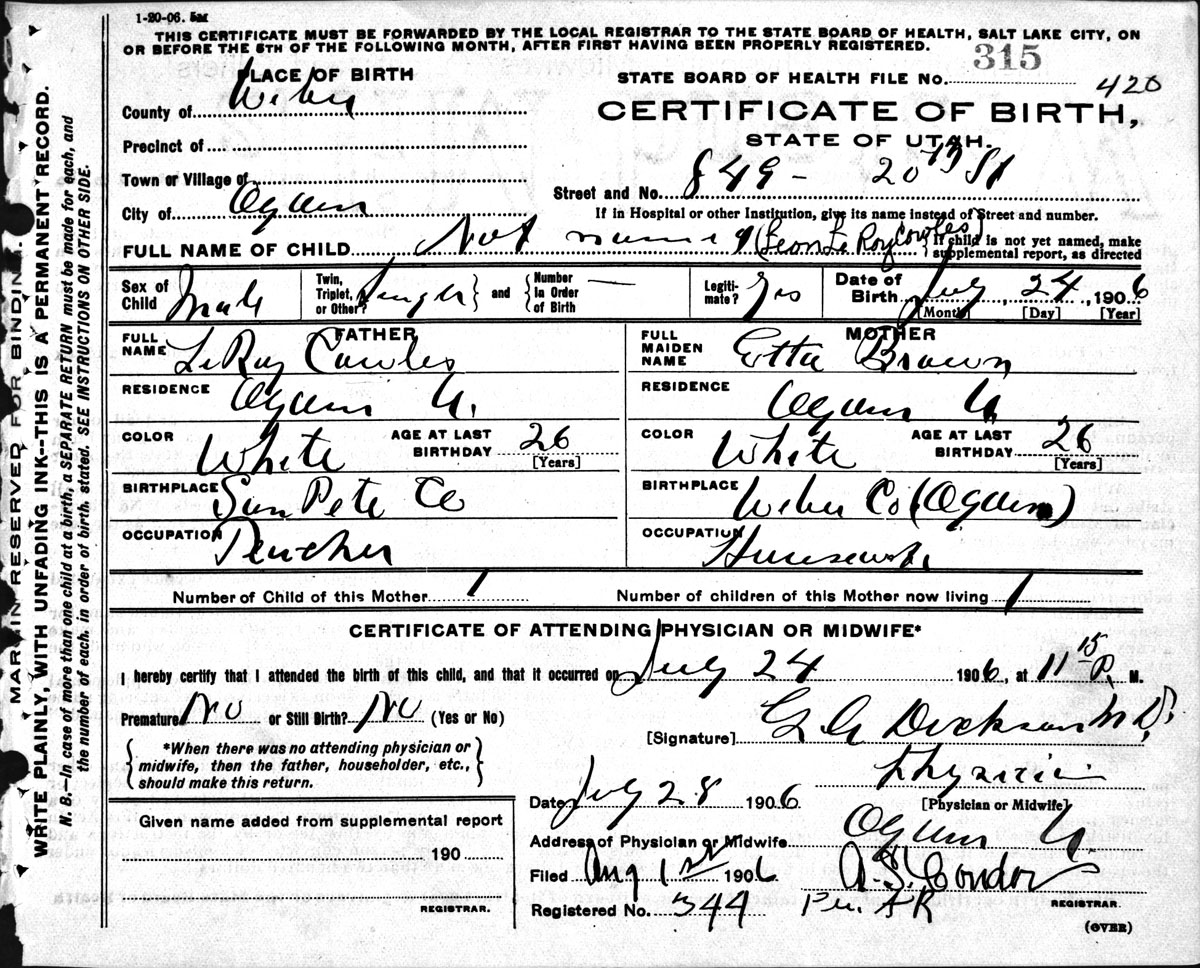 1-20-06. 5M
THIS CERTIFICATE MUST BE FORWARDED BY THE LOCAL REGISTRAR TO THE STATE BOARD OF HEALTH, SALT LAKE CITY, ON
OR BEFORE THE 5TH OF THE FOLLOWING MONTH, AFTER FIRST HAVING BEEN PROPERLY REGISTERED.
315
PLACE OF BIRTH
STATE BOARD OF HEALTH FILE NO. 420
County of Weber
CERTIFICATE OF BIRTH,
STATE OF UTAH.
Precinct of
Town or Village of
Street and No. 849 - 20th St
City of Ogden
If in Hospital or other Institution, give its name instead of Street and number.
FULL NAME OF CHILD Not named (Leon Le Roy Cowles) { If child is not yet named, make supplemental report, as directed
Sex of Child Male
Twin, Triplet, or Other? Single } and { Number in Order of Birth —
Legitimate? Yes
Date of Birth July 24, 1906
[Month] [Day] [Year]
FATHER
FULL NAME LeRoy Cowles
MOTHER
FULL MAIDEN NAME Etta Brown
RESIDENCE Ogden U.
RESIDENCE Ogden U
COLOR White AGE AT LAST BIRTHDAY 26 [Years]
COLOR White AGE AT LAST BIRTHDAY 26 [Years]
BIRTHPLACE San Pete Co
BIRTHPLACE Weber Co (Ogden)
OCCUPATION Teacher
OCCUPATION Housewife
Number of Child of this Mother 1
Number of children of this Mother now living 1
CERTIFICATE OF ATTENDING PHYSICIAN OR MIDWIFE*
I hereby certify that I attended the birth of this child, and that it occurred on July 24 1906, at 11 15 P. M.
Premature No or Still Birth? No (Yes or No)
[Signature] Dickson M.D.
{ *When there was no attending physician or
midwife, then the father, householder, etc.,
should make this return. }
Physician
[Physician or Midwife]
Date July 28 1906
Given name added from supplemental report
190
REGISTRAR.
Address of Physician or Midwife Ogden U.
Filed Aug 1st 1906 A. S. Condon
REGISTRAR.
Registered No. 344 Per AR
(OVER)
MARGIN RESERVED FOR BINDING.
WRITE PLAINLY, WITH UNFADING INK--THIS IS A PERMANENT RECORD.
N. B.—In case of more than one child at a birth, a SEPARATE RETURN must be made for each, and
the number of each, in order of birth, stated. SEE INSTRUCTIONS ON OTHER SIDE.